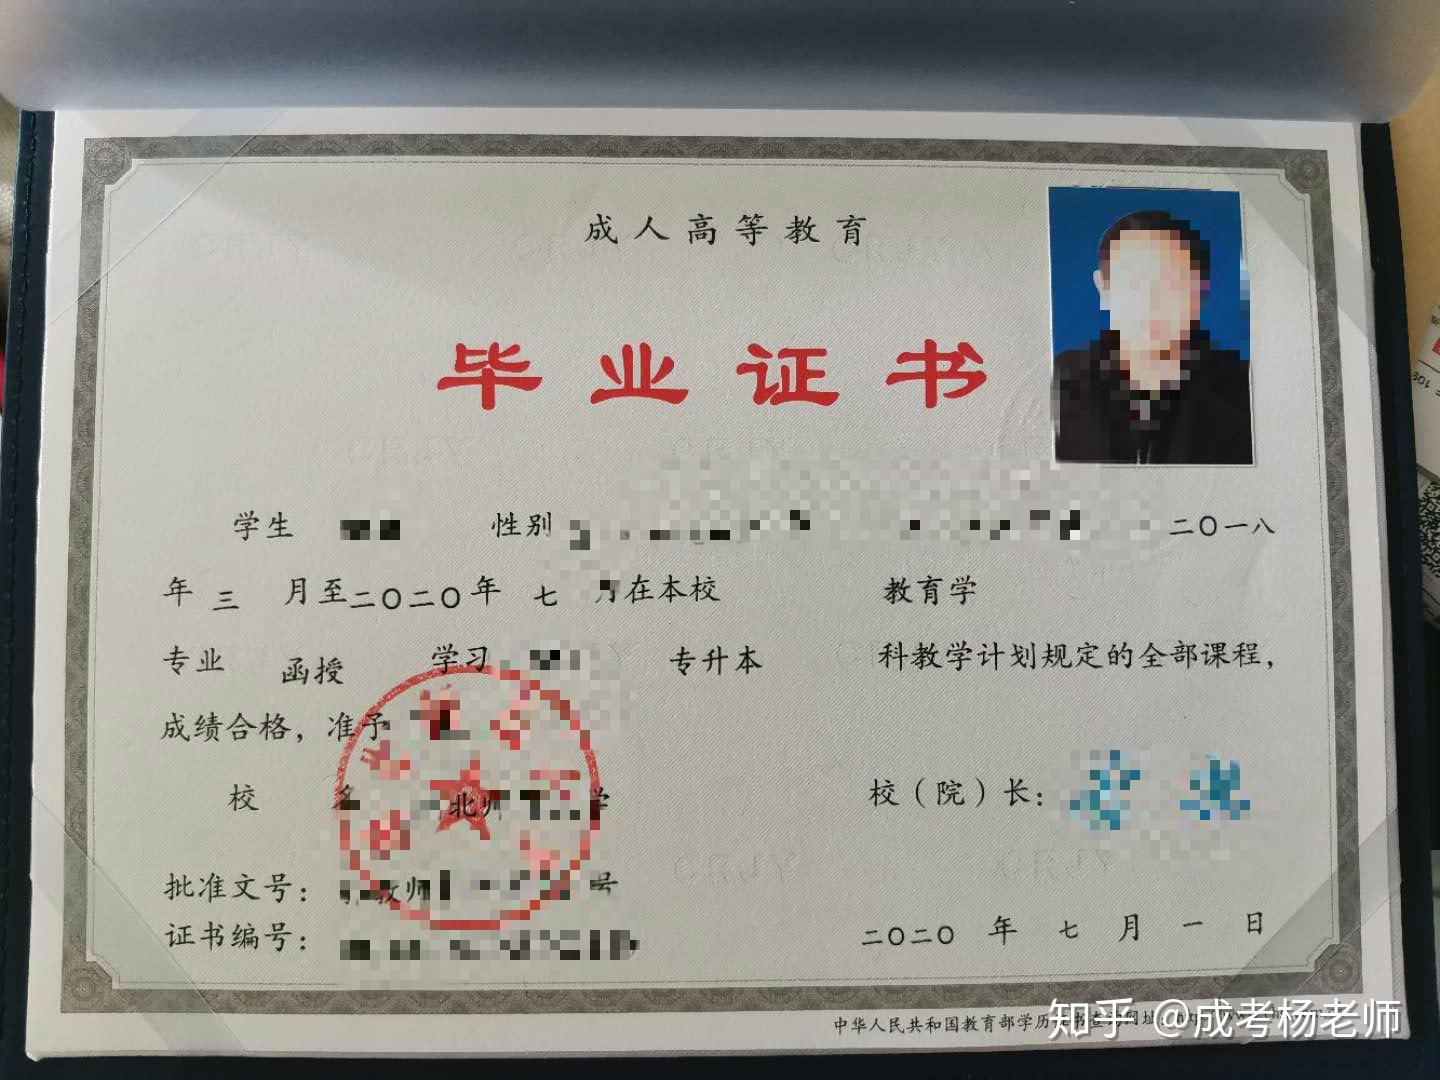 成人高等教育
毕业证书
学生 性别 二〇一八
年 三 月至二〇二〇年 七 月在本校 教育学
专业 函授 学习 专升本 科教学计划规定的全部课程，
成绩合格，准予
校 北师 学 校（院）长：
批准文号： 教师 号
证书编号：
二〇二〇 年 七 月 一 日
中华人民共和国教育部学历证书查询网址
知乎 @成考杨老师